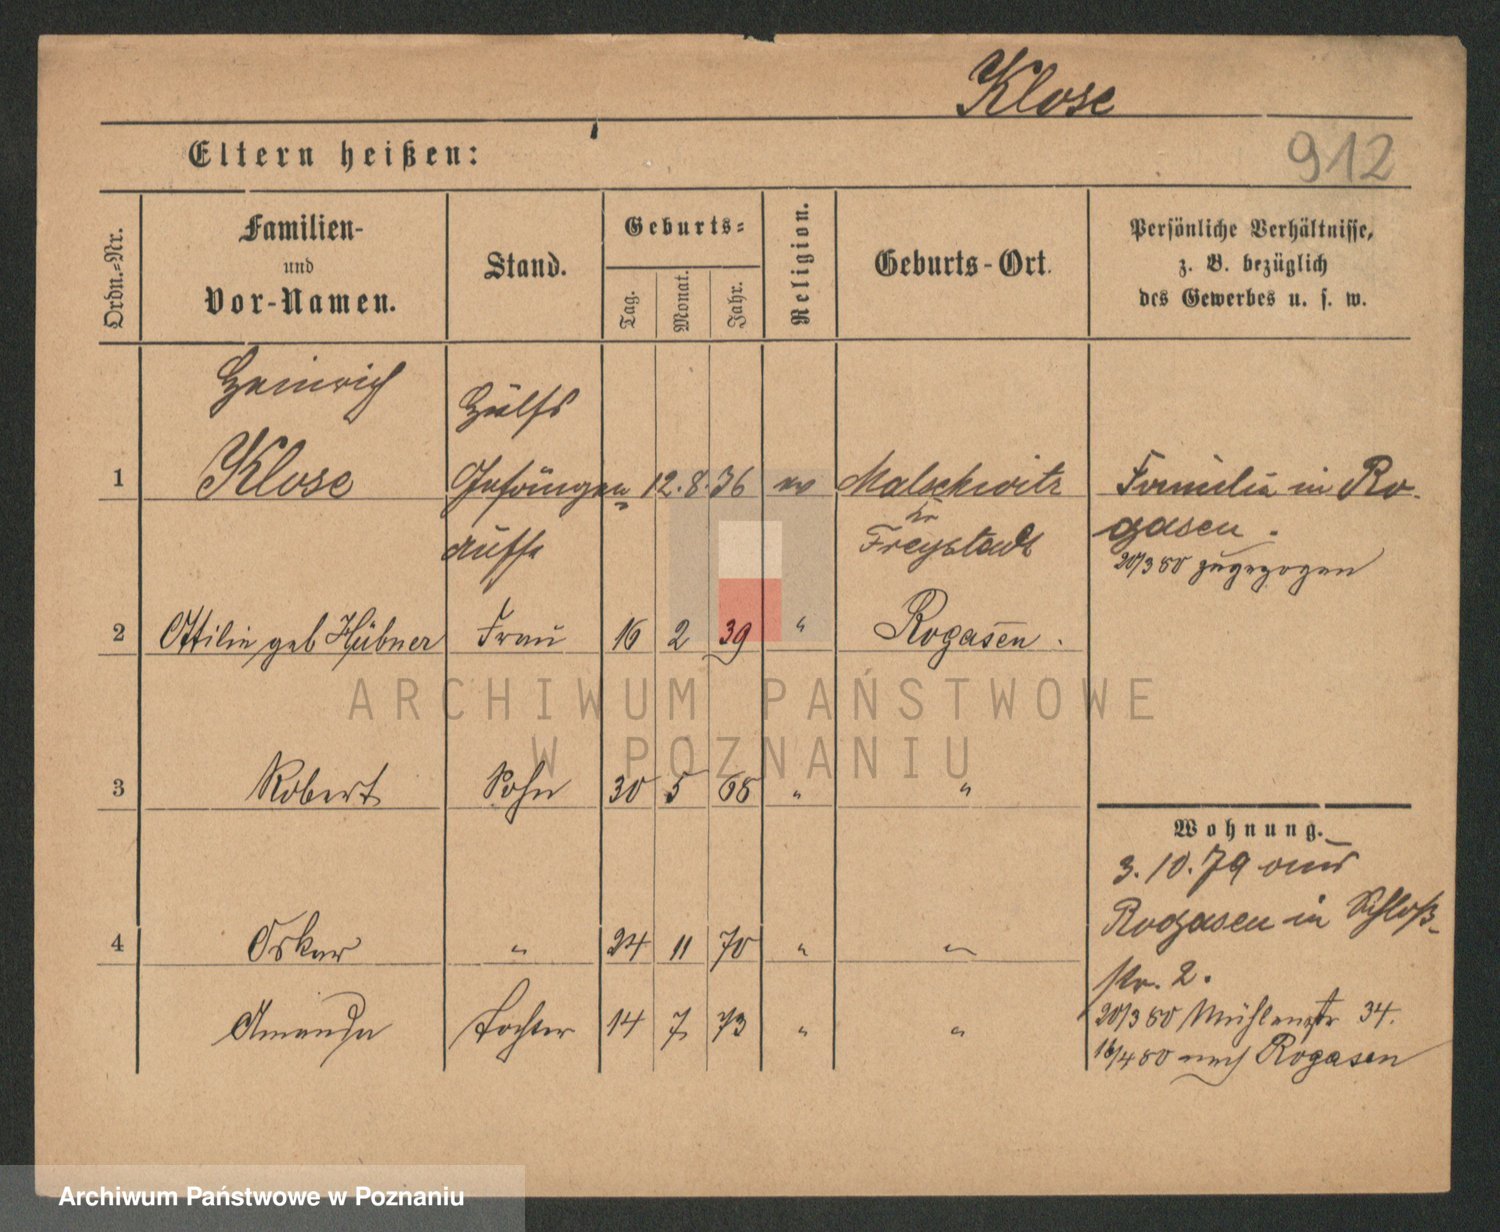 Klose
912
Eltern heißen:
Ordn.-Nr.
Familien- und Vor-Namen.
Stand.
Geburts-
Tag.
Monat.
Jahr.
Religion.
Geburts-Ort.
Persönliche Verhältnisse,
z. B. bezüglich
des Gewerbes u. s. w.
Heinrich
Hülfs
1 Klose Gefangen 12. 8. 36 ev Malschwitz Familie in Ro-
aufse Kr Freystadt gasen.
20/3 80 zugezogen
2 Ottilie geb Hübner Frau 16 2 39 " Rogasen.
3 Robert Sohn 30 5 68 " "
Wohnung.
3. 10. 79 aus
Rogasen in Schloß-
str. 2.
4 Oskar " 24 11 70 " "
20/3 80 Mühlenstr 34.
Amanda Tochter 14 7 73 " "
16/4 80 nach Rogasen
ARCHIWUM PAŃSTWOWE
W POZNANIU
Archiwum Państwowe w Poznaniu